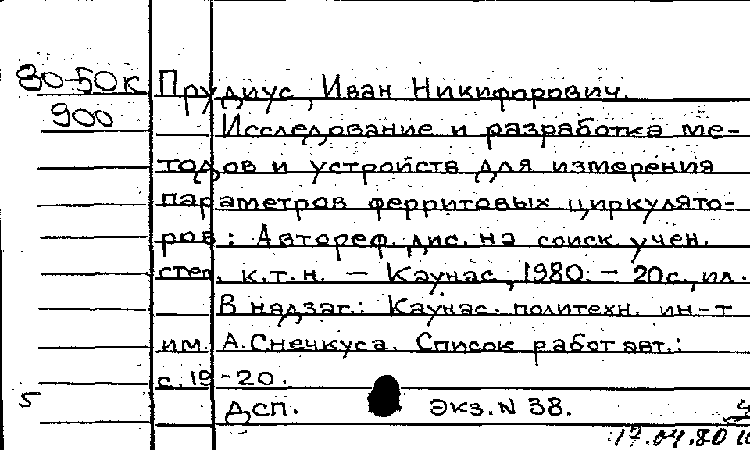 80-50к Прудиус, Иван Никифорович.
900 Исследование и разработка ме-
тодов и устройств для измерения
параметров ферритовых циркулято-
ров : Автореф. дис. на соиск. учен.
степ. к.т.н. — Каунас, 1980. — 20с., ил.
В надзаг.: Каунас. политехн. ин-т
им. А.Снечкуса. Список работ авт.:
с. 19-20.
5 ДСП. Экз. N 38.
17.04.80